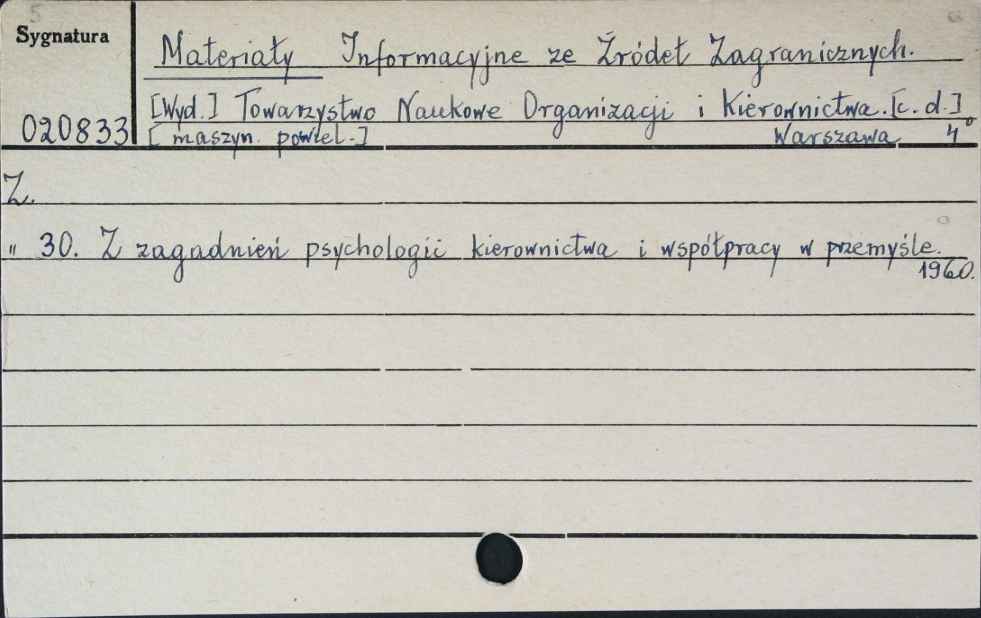 5
Sygnatura
Materiały Informacyjne ze Źródeł Zagranicznych.
[Wyd.] Towarzystwo Naukowe Organizacji i Kierownictwa. [c. d.]
020833 [maszyn. powiel.] Warszawa 4°
Z.
" 30. Z zagadnień psychologii kierownictwa i współpracy w przemyśle.
1960.